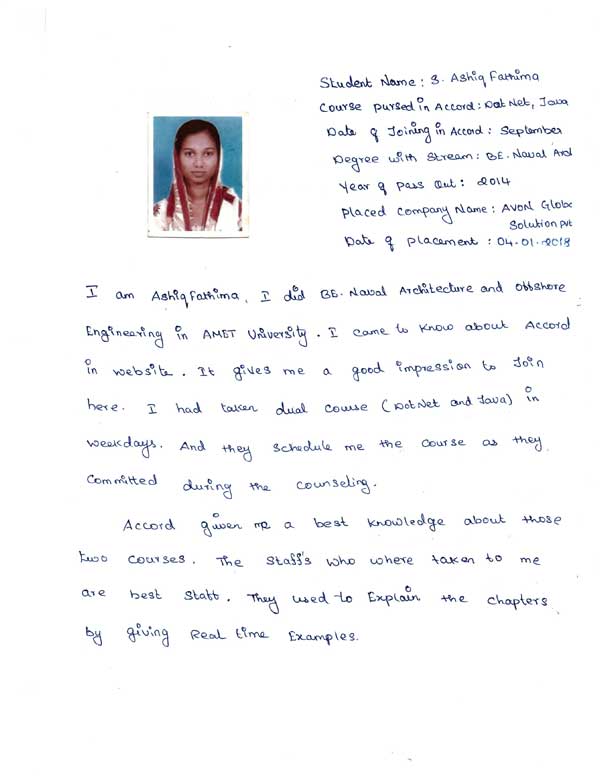 Student Name : S. Ashiq Fathima
Course pursed in Accord : Dot Net, Java
Date of Joining in Accord : September
Degree with Stream : BE. Naval Arcl
Year of Pass Out : 2014
Placed Company Name : AVON Globe
Solution Pvt
Date of Placement : 04.01.2018
I am Ashiq Fathima, I did BE. Naval Architecture and Offshore
Engineering in AMET University. I came to know about Accord
in website. It gives me a good impression to Join
here. I had taken dual course (Dot Net and Java) in
weekdays. And they schedule me the course as they
committed during the counseling.
Accord given me a best knowledge about those
two courses. The Staff's who where taken to me
are best Staff. They used to Explain the chapters
by giving Real time Examples.